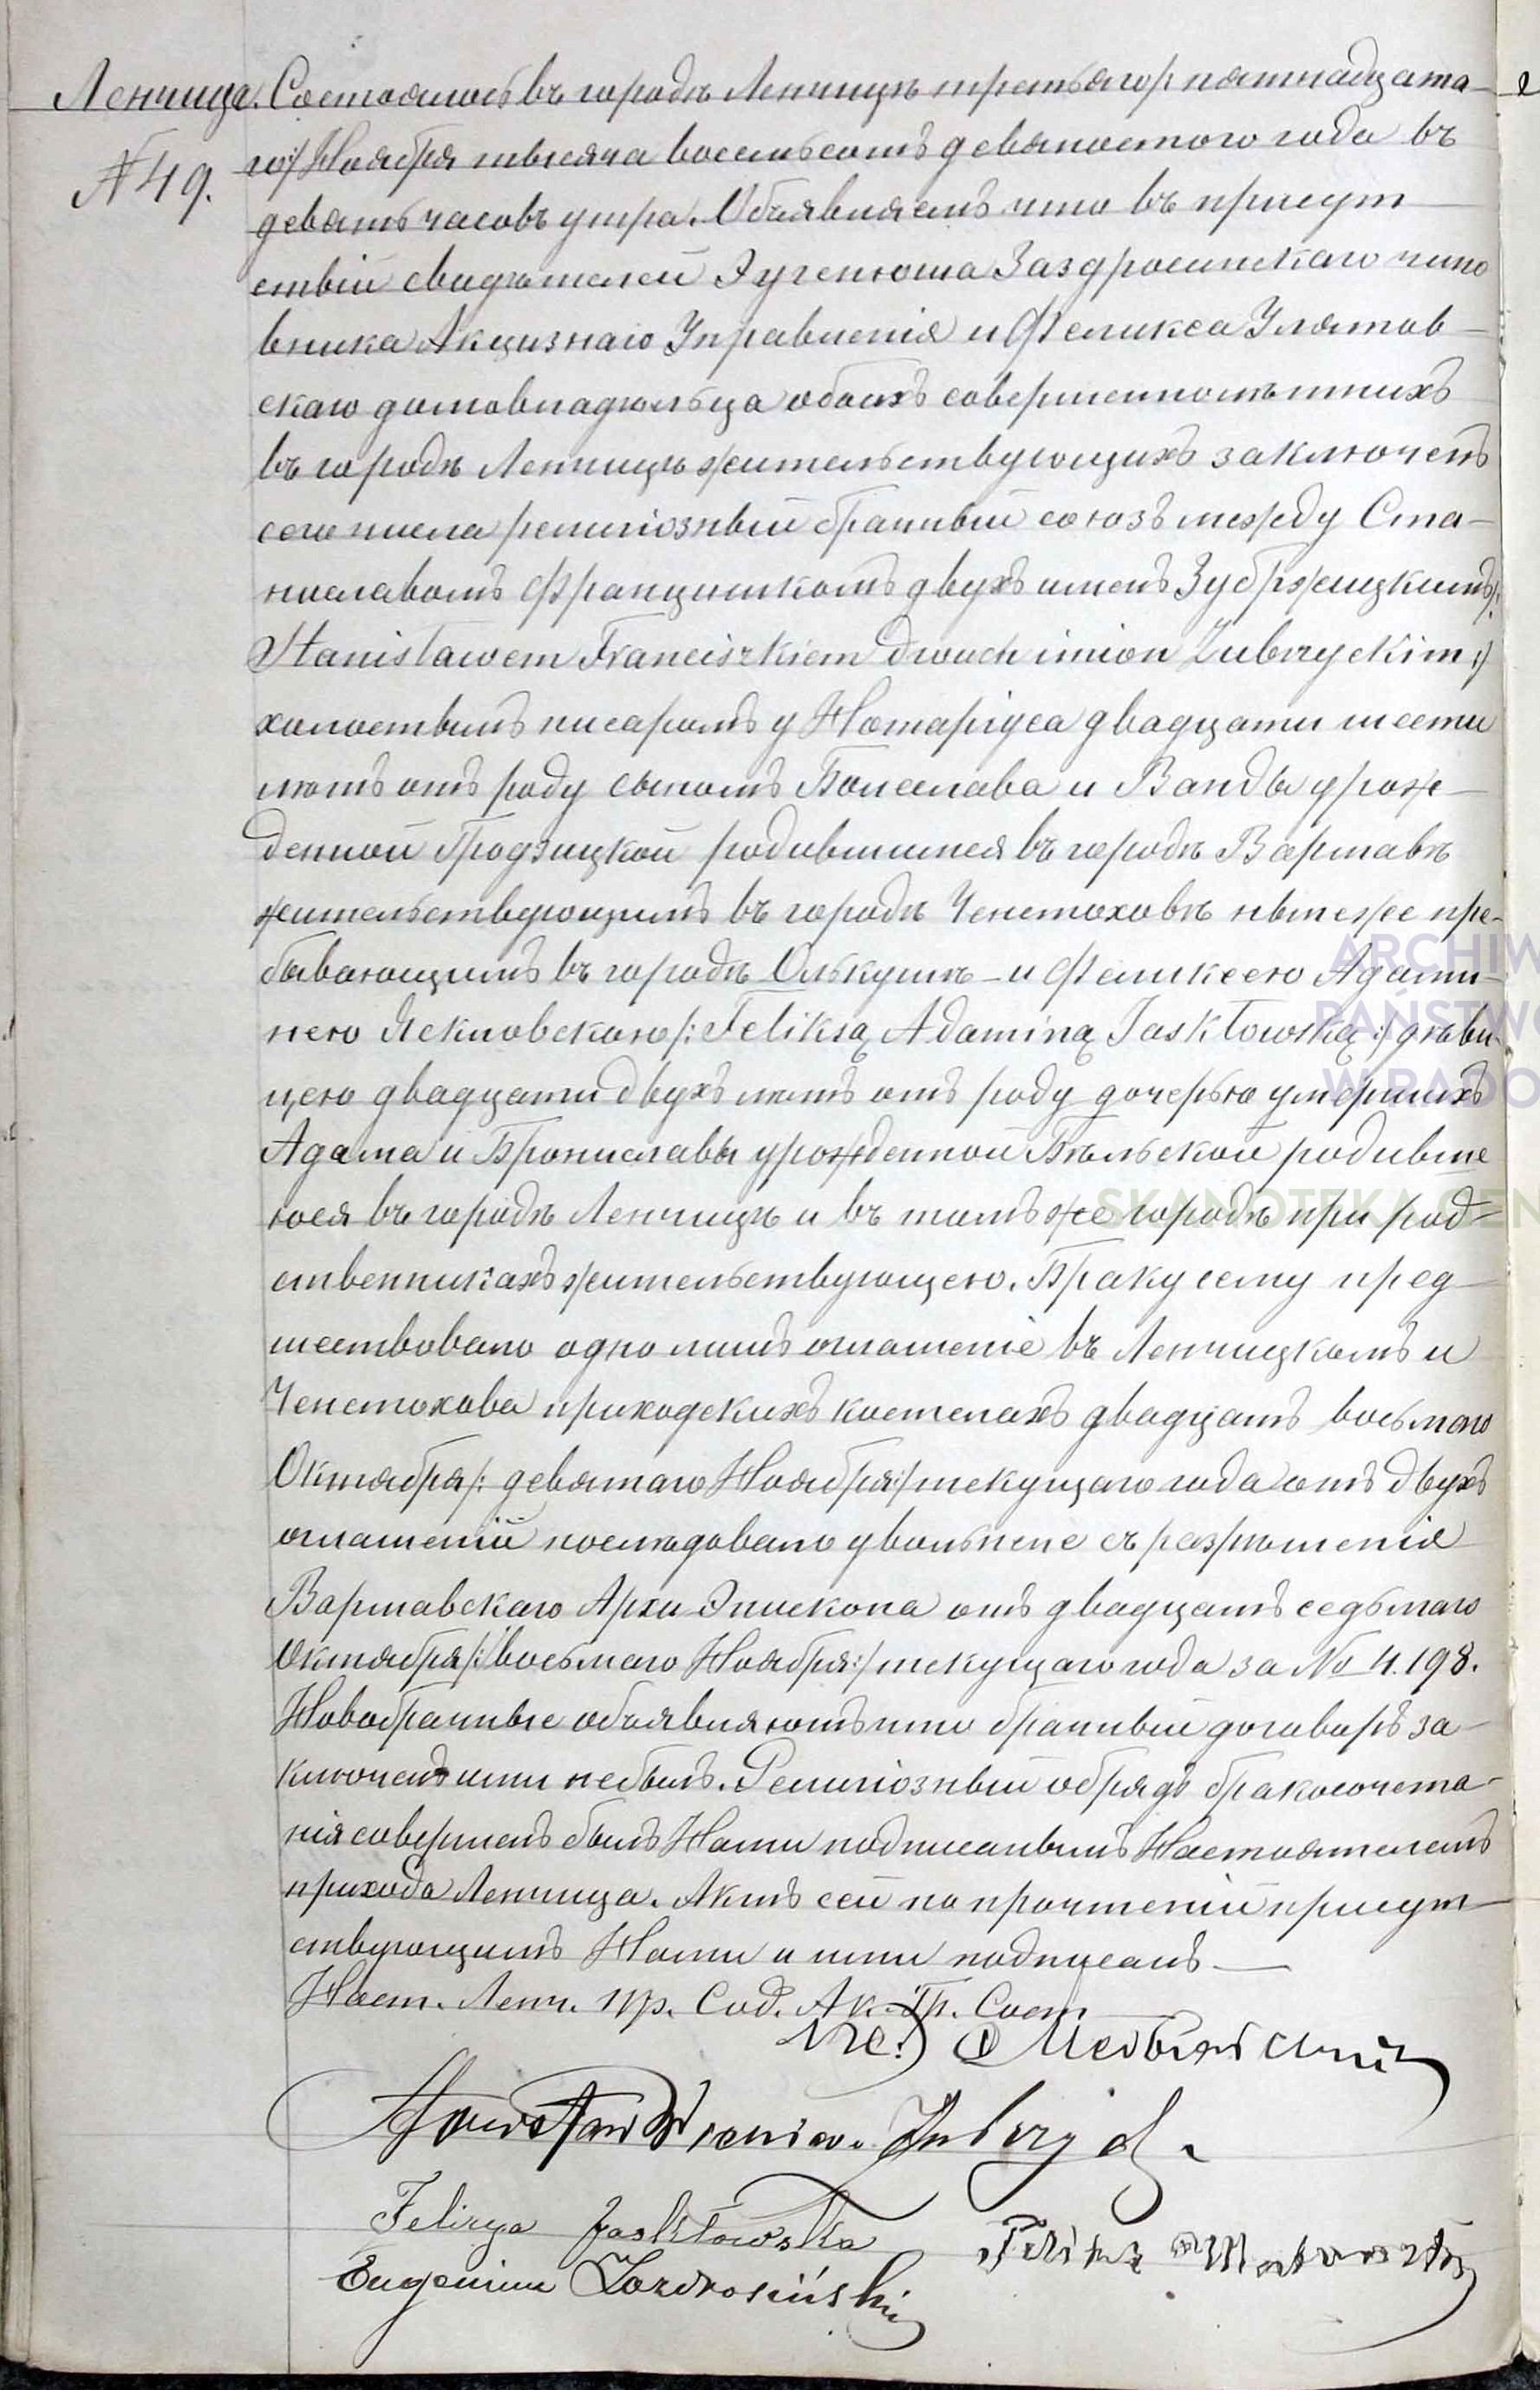 Ленчица. Состоялось въ городѣ Ленчицѣ третьяго /: пятнадцата-
№ 49.
го :/ Ноября тысяча восемьсотъ девяностого года въ
девять часовъ утра. Объявляемъ что въ присут
ствіи свидѣтелей Эугенюша Заздросинскаго чино
вника Акцизнаго Управленія и Феликса Улятов-
скаго домовладѣльца обоихъ совершеннолѣтнихъ
въ городѣ Ленчицѣ жительствующихъ заключенъ
сего числа религіозный брачный союзъ между Ста-
ниславомъ Францишкомъ двухъ именъ Зубржицкимъ /:
Stanisławem Franciszkiem dwuch imion Zubrzyckim :/
холостымъ писаромъ у Нотаріуса двадцати шести
лѣтъ отъ роду сыномъ Болеслава и Ванды урож-
денной Гродзицкой родившимся въ городѣ Варшавѣ
жительствующимъ въ городѣ Ченстоховѣ ныне же пре-
бывающимъ въ городѣ Олькушѣ - и Феликсею Адами-
нею Яскловскою /: Feliksą Adaminą Jaskłowską :/ дѣви-
цею двадцати двухъ лѣтъ отъ роду дочерью умершихъ
Адама и Брониславы урожденной Бѣльской родивше
юся въ городѣ Ленчицѣ и въ томъ же городѣ при род-
ственникахъ жительствующею. Браку сему пред-
шествовало одно лишь оглашеніе въ Ленчицкомъ и
Ченстохова приходскихъ костелахъ двадцать восьмого
Октября /: девятаго Ноября :/ текущаго года отъ двухъ
оглашеній последовало увольнене съ разрѣшенія
Варшавскаго Архи Эпископа отъ двадцать седьмаго
Октября /: восьмаго Ноября :/ текущаго года за № 4.198.
Новобрачные объявляютъ что брачный договоръ за-
ключенъ ими не былъ. Религіозный обрядъ бракосочета-
нія совершенъ былъ Нами подписанымъ Настоятелемъ
прихода Ленчица. Актъ сей по прочтеніи присут-
ствующимъ Нами и ими подписанъ —
Наст. Ленч. пр. Сод. Ак. Гр. Сост
Stanisław Zubrzycki
Felixya Jaskłowska
Feliks
Eugeniusz Zazdrosiński
ARCHIW
PAŃSTWO
W RADO
SKANOTEKA GEN